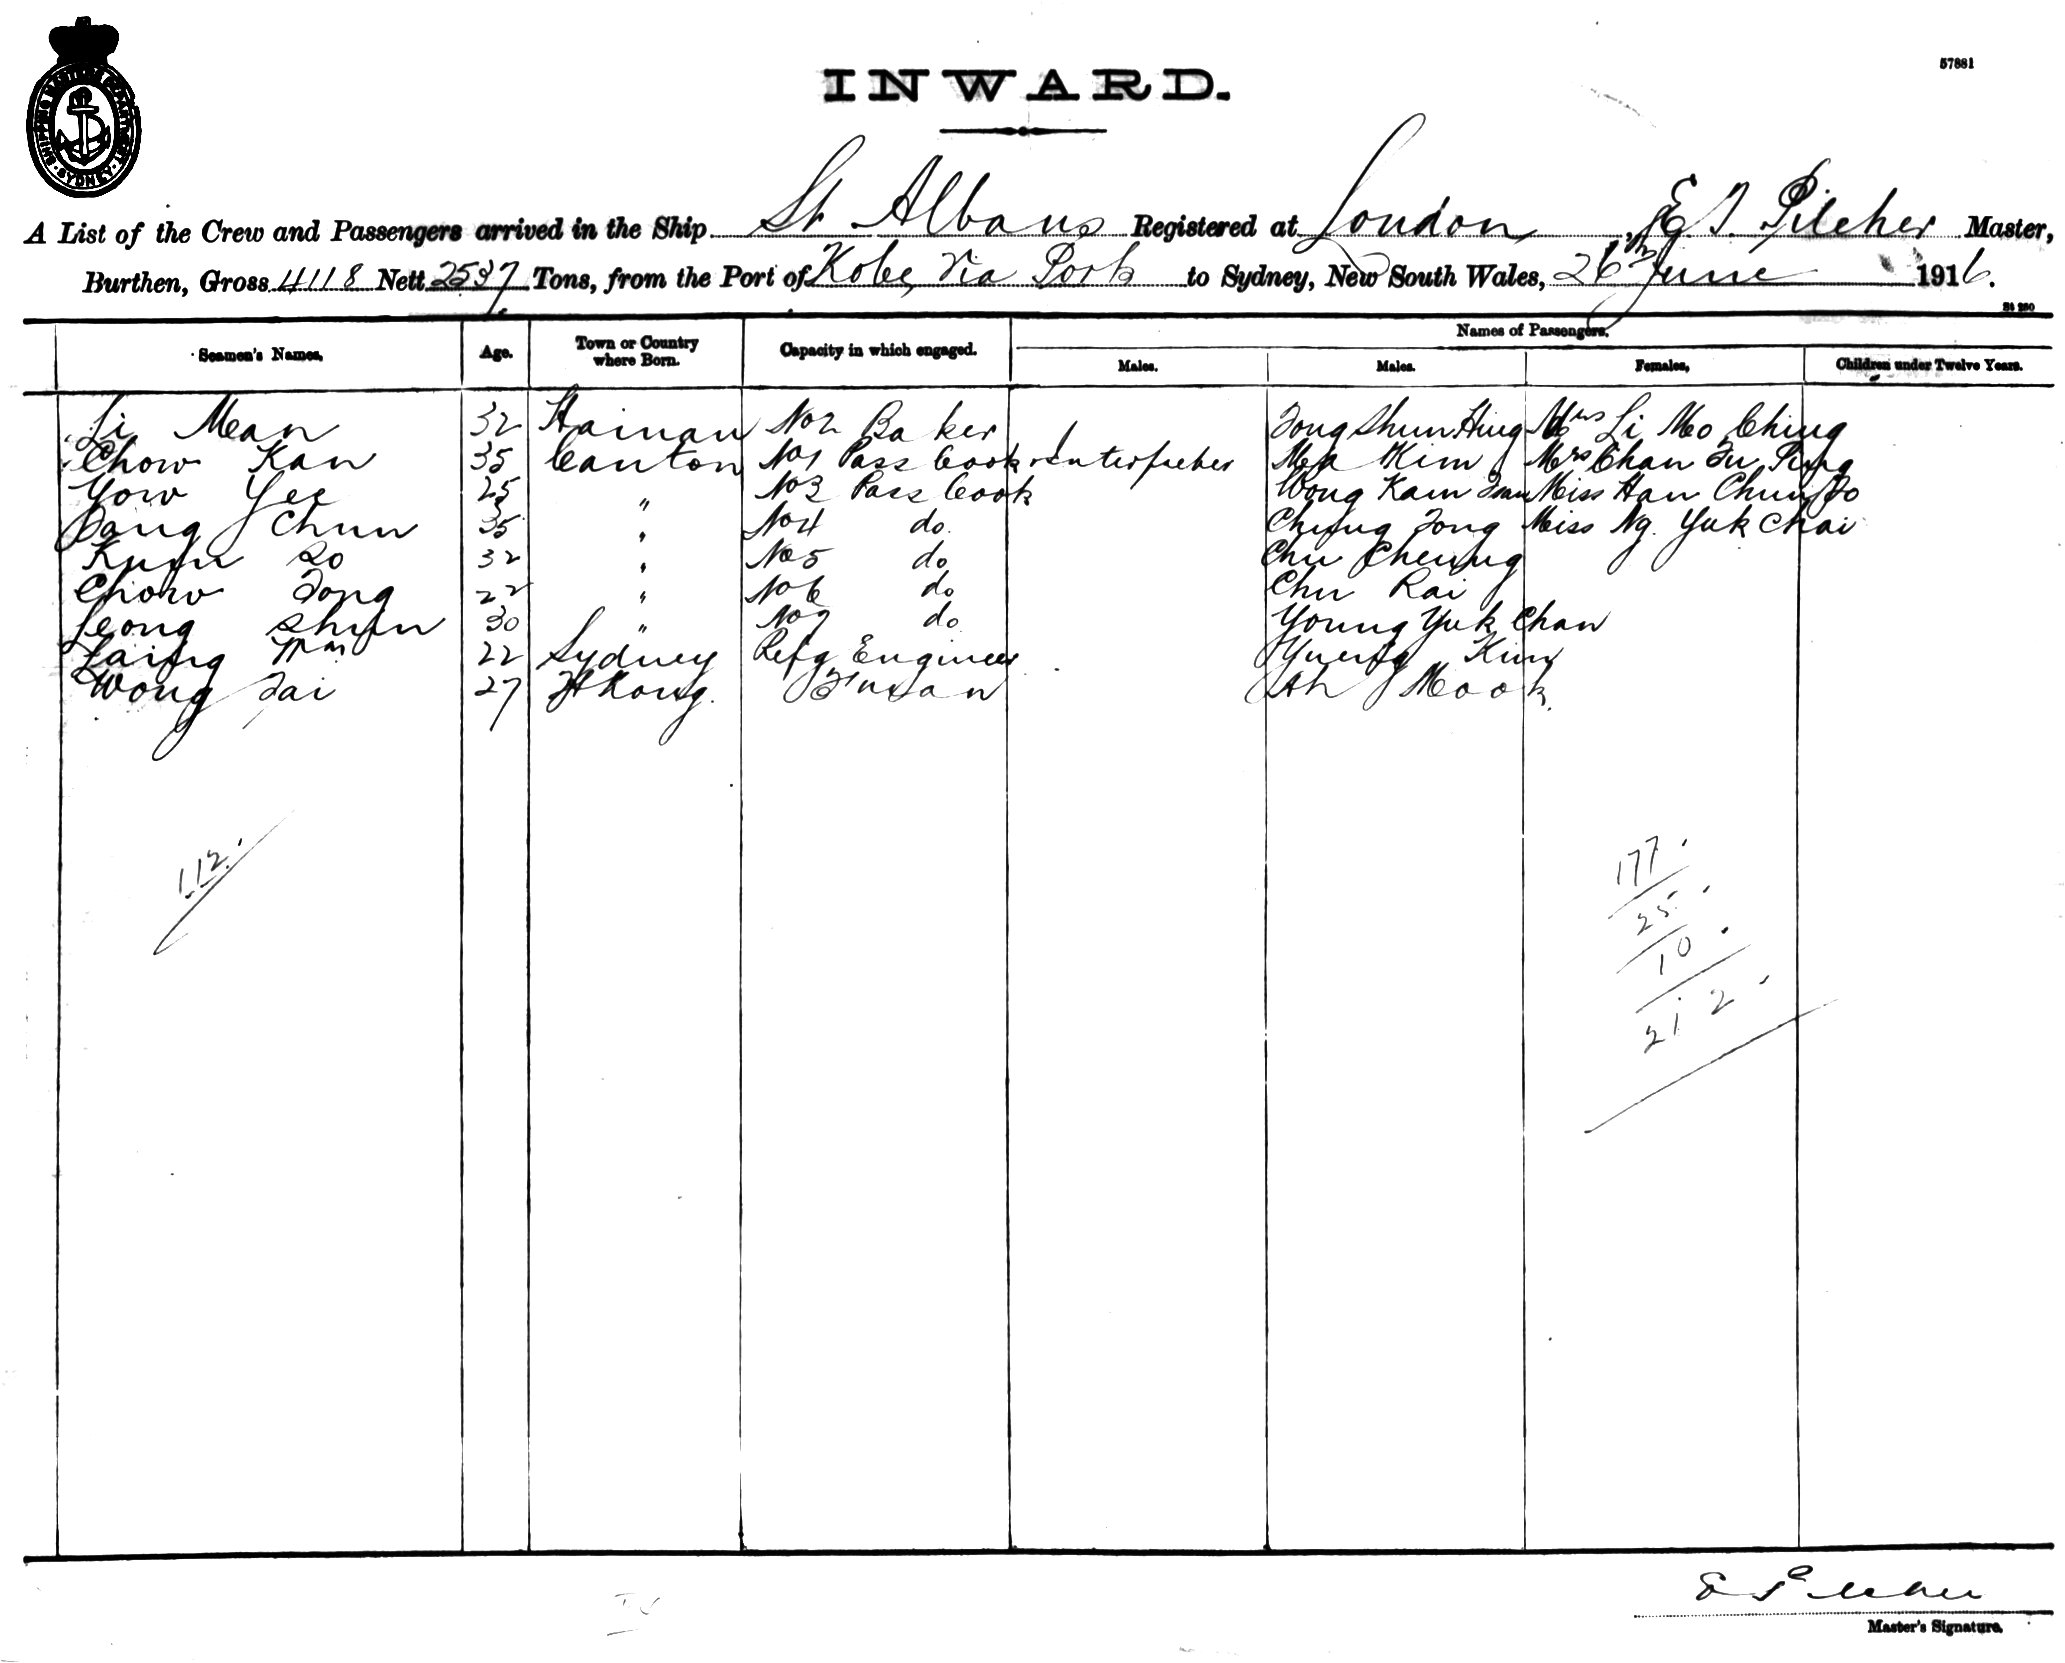 57881
INWARD.
SHIPPING MASTERS DEPARTMENT SYDNEY
A List of the Crew and Passengers arrived in the Ship St Albans Registered at London, E. T. Pilcher Master,
Burthen, Gross 4118 Nett 2537 Tons, from the Port of Kobe via Ports to Sydney, New South Wales, 26th June 1916.
St 250
Names of Passengers.
Seamen's Names. Age. Town or Country where Born. Capacity in which engaged. Males. Males. Females. Children under Twelve Years.
Li Mean 32 Hainan No 2 Baker Tong Shun Hing Mrs Li Mo Ching
Chow Kan 35 Canton No 1 Pass Cook Interpreter Mea Kim Mrs Chan Fu Ping
Yow Yee 25 " No 3 Pass Cook Wong Kam Miss Han Chun
Chun 35 " No 4 do. Chung Tong Miss Ng. Yuk Chai
So 32 " No 5 do Chu Cheung
Chow Tong 22 " No 6 do Chu Kai
Leong Shun 30 " No 7 do Young Yuk Chan
Laing Wm 22 Sydney Refg Engineer Yueng Kim
Wong Tai 27 H Kong. Fireman Ah Mook.
112.
177.
25.
10.
212.
E Pilcher
Master's Signature.